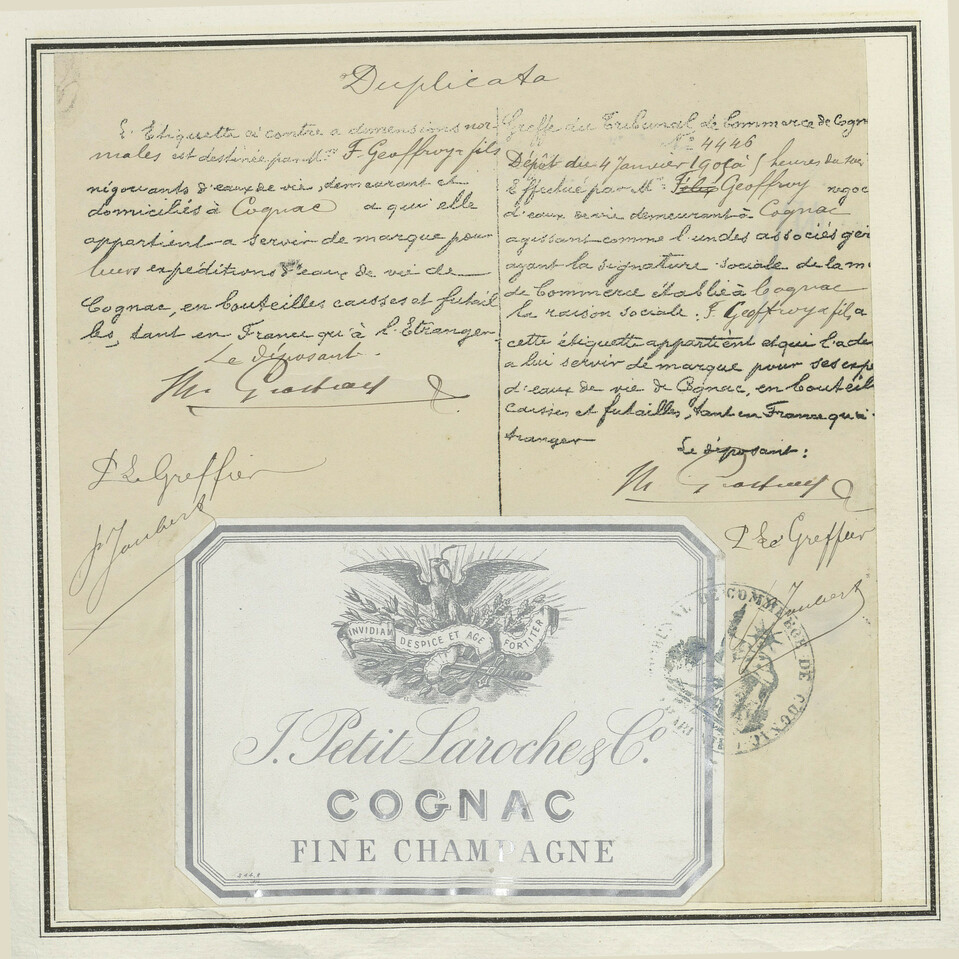 Duplicata
L'Etiquette ci contre a dimensions nor-
males est destinée par M.rs F. Geoffroy & fils
négociants d'eaux de vie, demeurant et
domiciliés à Cognac a qui elle
appartient a servir de marque pour
leurs expéditions d'eaux de vie de
Cognac, en bouteilles caisses et futail
les, tant en France qu'à l'Etranger.
Le déposant.
P. Le Greffier
Joubert
Greffe du Tribunal de Commerce de Cogn
N° 4446
Dépôt du 4 Janvier 190 à 5 heures du soir
Effectué par M. Geoffroy negoc
d'eaux de vie demeurant à Cognac
agissant comme l'un des associés gér
ayant la signature sociale de la m
de Commerce établie à Cognac
la raison sociale: F. Geoffroy & fils, a
cette étiquette appartient et qui l'a de
a lui servir de marque pour ses expé
d'eaux de vie de Cognac, en bouteil
caisses et futailles, tant en France qu'à
tranger
Le déposant:
P. Le Greffier
Joubert
INVIDIAM DESPICE ET AGE FORTITER
J. Petit Laroche & Co.
COGNAC
FINE CHAMPAGNE
TRIBUNAL DE COMMERCE DE COGNAC